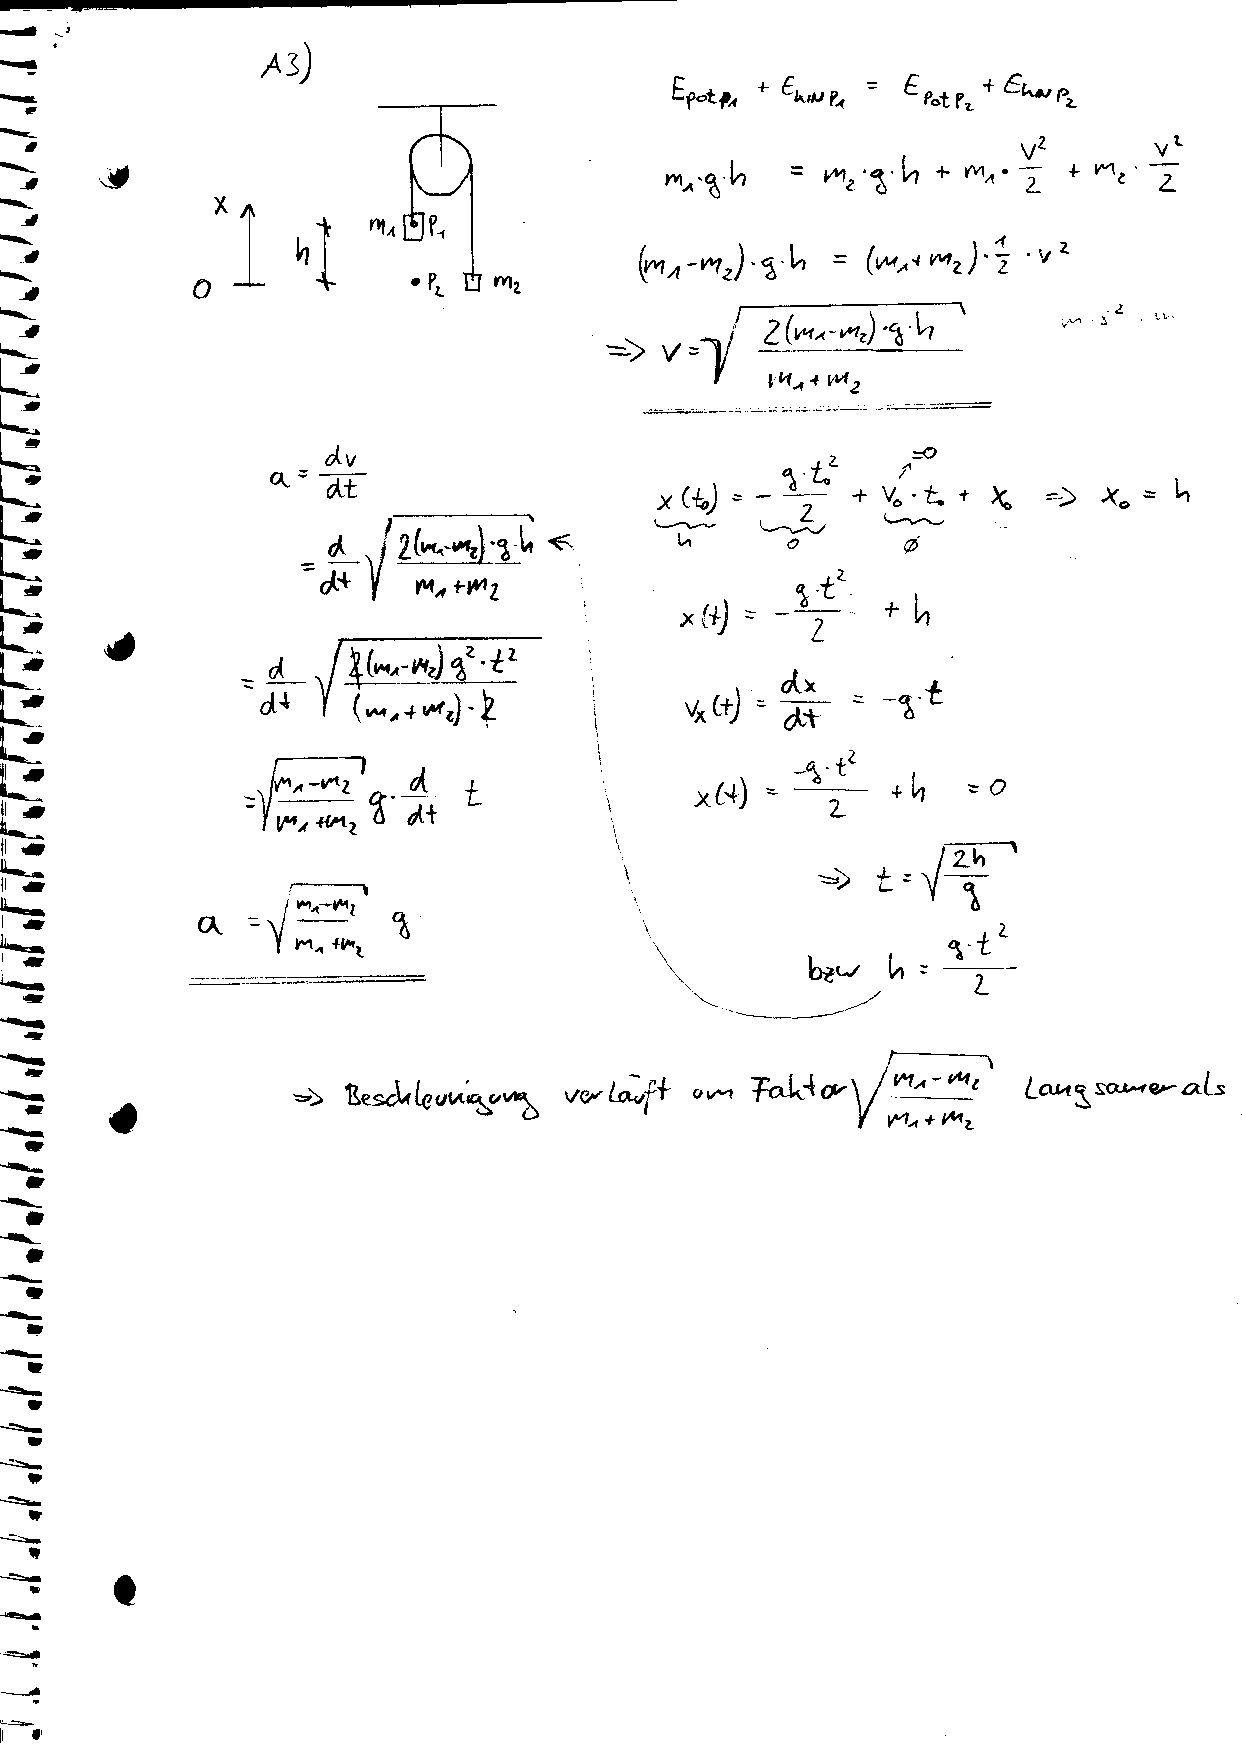 A3)
E_pot P₁ + E_kin P₁ = E_pot P₂ + E_kin P₂
m₁·g·h = m₂·g·h + m₁·v²/2 + m₂·v²/2
x
h
m₁ P₁
0
P₂ m₂
(m₁-m₂)·g·h = (m₁+m₂)·1/2·v²
=> v = √(2(m₁-m₂)·g·h / m₁+m₂)
a = dv/dt
= d/dt √(2(m₁-m₂)·g·h / m₁+m₂)
= d/dt √(2(m₁-m₂)g²·t² / (m₁+m₂)·2)
= √(m₁-m₂ / m₁+m₂) g·d/dt t
a = √(m₁-m₂ / m₁+m₂) g
x(t₀) = -g·t₀²/2 + v₀·t₀ + x₀ => x₀ = h
=0
h 0 ∅
x(t) = -g·t²/2 + h
vₓ(t) = dx/dt = -g·t
x(t) = -g·t²/2 + h = 0
=> t = √(2h/g)
bzw h = g·t²/2
=> Beschleunigung verläuft um Faktor √(m₁-m₂ / m₁+m₂) langsamer als